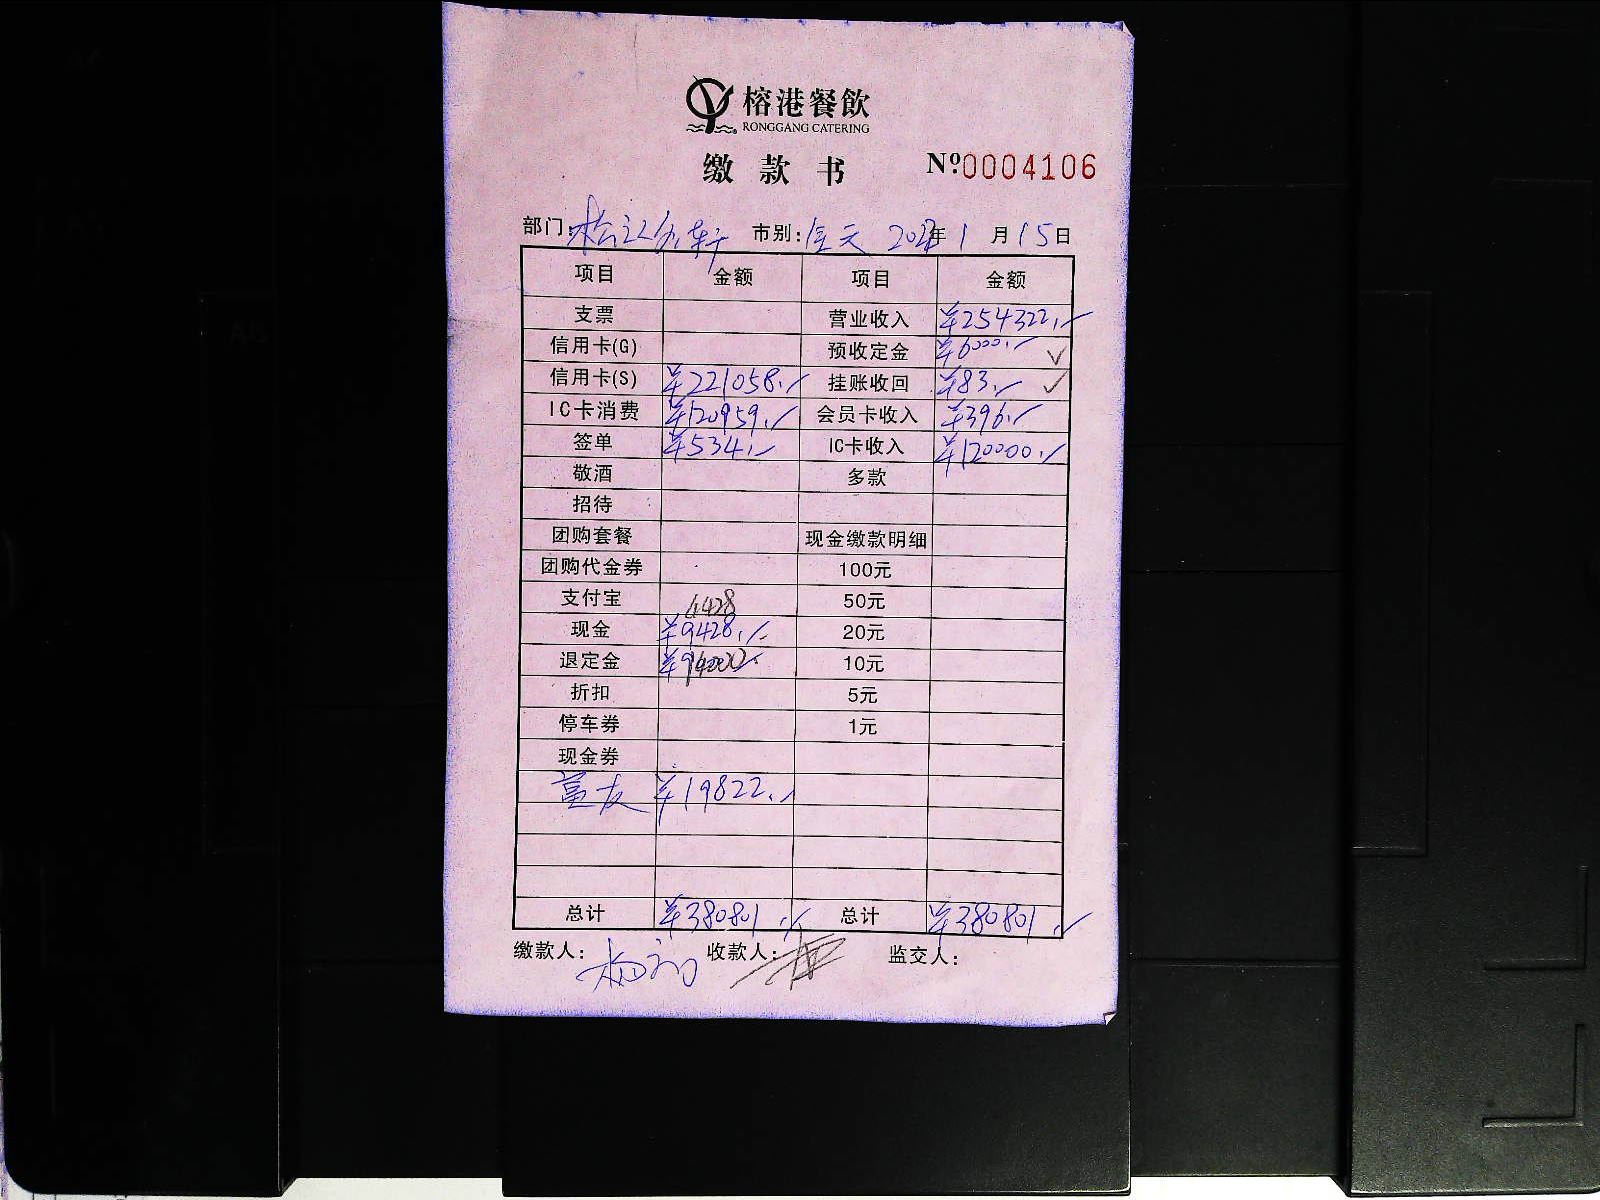 榕港餐飲
RONGGANG CATERING
缴款书 №:0004106
部门: 市别:全天 年1月15日
项目 金额 项目 金额
支票 营业收入 ¥254322.
信用卡(G) 预收定金 ¥6000. ✓
信用卡(S) ¥221058. 挂账收回 ¥83. ✓
IC卡消费 ¥120959. 会员卡收入 ¥396.
签单 ¥534. IC卡收入 ¥120000.
敬酒 多款
招待
团购套餐 现金缴款明细
团购代金券 100元
支付宝 50元
现金 ¥9428. 20元
退定金 10元
折扣 5元
停车券 1元
现金券
富友 ¥19822.
总计 ¥380801. 总计 ¥380801.
缴款人: 收款人: 监交人: